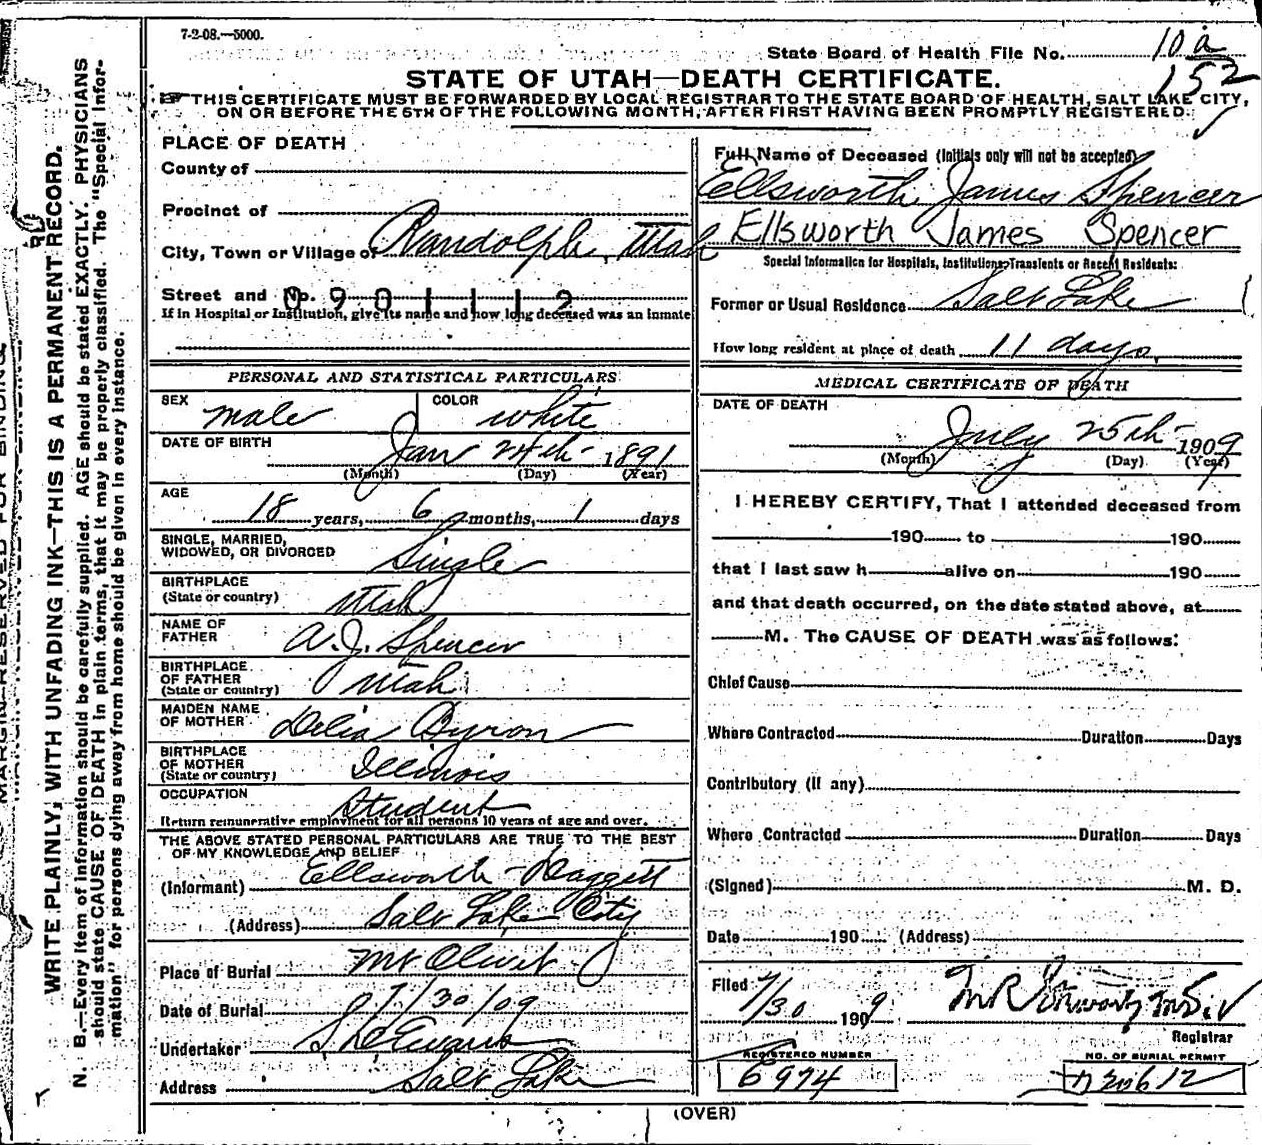 7-2-08.—5000.
State Board of Health File No. 10 a
152
STATE OF UTAH—DEATH CERTIFICATE.
THIS CERTIFICATE MUST BE FORWARDED BY LOCAL REGISTRAR TO THE STATE BOARD OF HEALTH, SALT LAKE CITY,
ON OR BEFORE THE 5TH OF THE FOLLOWING MONTH, AFTER FIRST HAVING BEEN PROMPTLY REGISTERED.
PLACE OF DEATH
County of
Precinct of
City, Town or Village of Randolph, Utah
Street and No. 0901112
If in Hospital or Institution, give its name and how long deceased was an inmate
PERSONAL AND STATISTICAL PARTICULARS
SEX male COLOR white
DATE OF BIRTH Jan 24th 1891
(Month) (Day) (Year)
AGE
18 years, 6 months, 1 days
SINGLE, MARRIED,
WIDOWED, OR DIVORCED Single
BIRTHPLACE
(State or country) Utah
NAME OF
FATHER A. J. Spencer
BIRTHPLACE
OF FATHER
(State or country) Utah
MAIDEN NAME
OF MOTHER Delia Byron
BIRTHPLACE
OF MOTHER
(State or country) Illinois
OCCUPATION Student
Return remunerative employment for all persons 10 years of age and over.
THE ABOVE STATED PERSONAL PARTICULARS ARE TRUE TO THE BEST
OF MY KNOWLEDGE AND BELIEF
(Informant) Ellsworth Daggett
(Address) Salt Lake City
Place of Burial Mt Olivet
Date of Burial 7/30/09
Undertaker Evans
Address Salt Lake
Full Name of Deceased (Initials only will not be accepted)
Ellsworth James Spencer
Ellsworth James Spencer
Special Information for Hospitals, Institutions, Transients or Recent Residents:
Former or Usual Residence Salt Lake
How long resident at place of death 11 days.
MEDICAL CERTIFICATE OF DEATH
DATE OF DEATH
July 25th 1909
(Month) (Day) (Year)
I HEREBY CERTIFY, That I attended deceased from
190 to 190
that I last saw h alive on 190
and that death occurred, on the date stated above, at
M. The CAUSE OF DEATH was as follows:
Chief Cause
Where Contracted Duration Days
Contributory (if any)
Where Contracted Duration Days
(Signed) M. D.
Date 190 (Address)
Filed 7/30 1909
Registrar
REGISTERED NUMBER
6974
NO. OF BURIAL PERMIT
(OVER)
WRITE PLAINLY, WITH UNFADING INK—THIS IS A PERMANENT RECORD.
N. B.—Every item of information should be carefully supplied. AGE should be stated EXACTLY. PHYSICIANS
should state CAUSE OF DEATH in plain terms, that it may be properly classified. The "Special Infor-
mation" for persons dying away from home should be given in every instance.
MARGIN RESERVED FOR BINDING